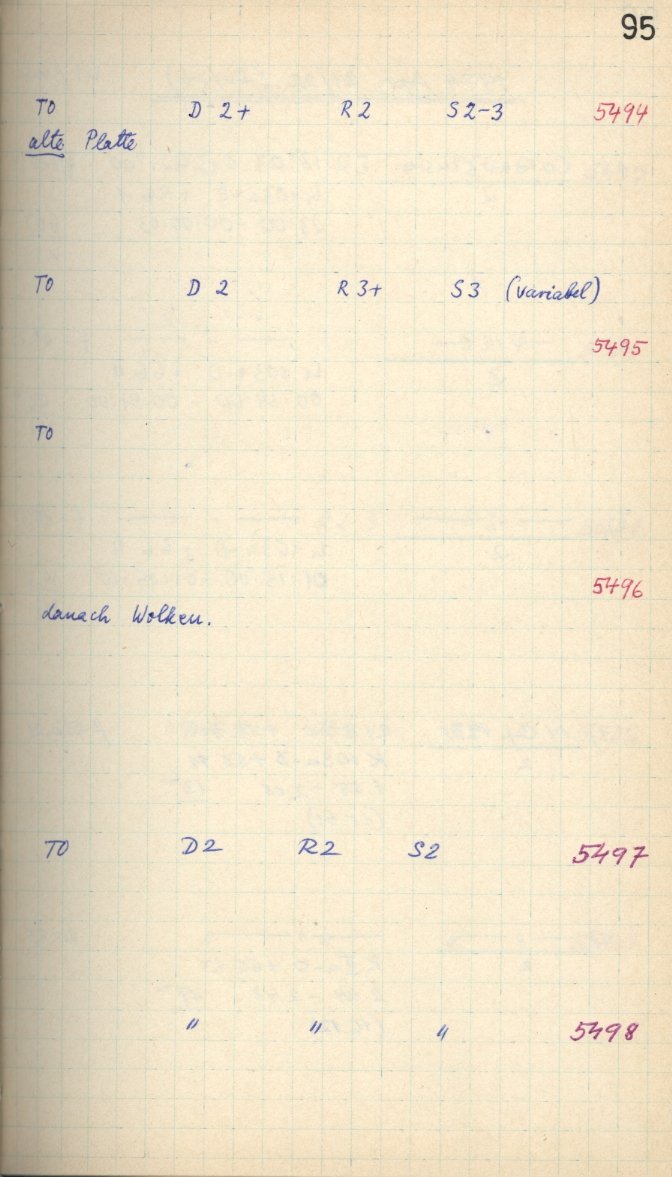 95
TO D 2+ R 2 S 2-3 5494
alte Platte
TO D 2 R 3+ S 3 (variabel)
5495
TO
5496
danach Wolken.
TO D2 R2 S2 5497
" " " 5498